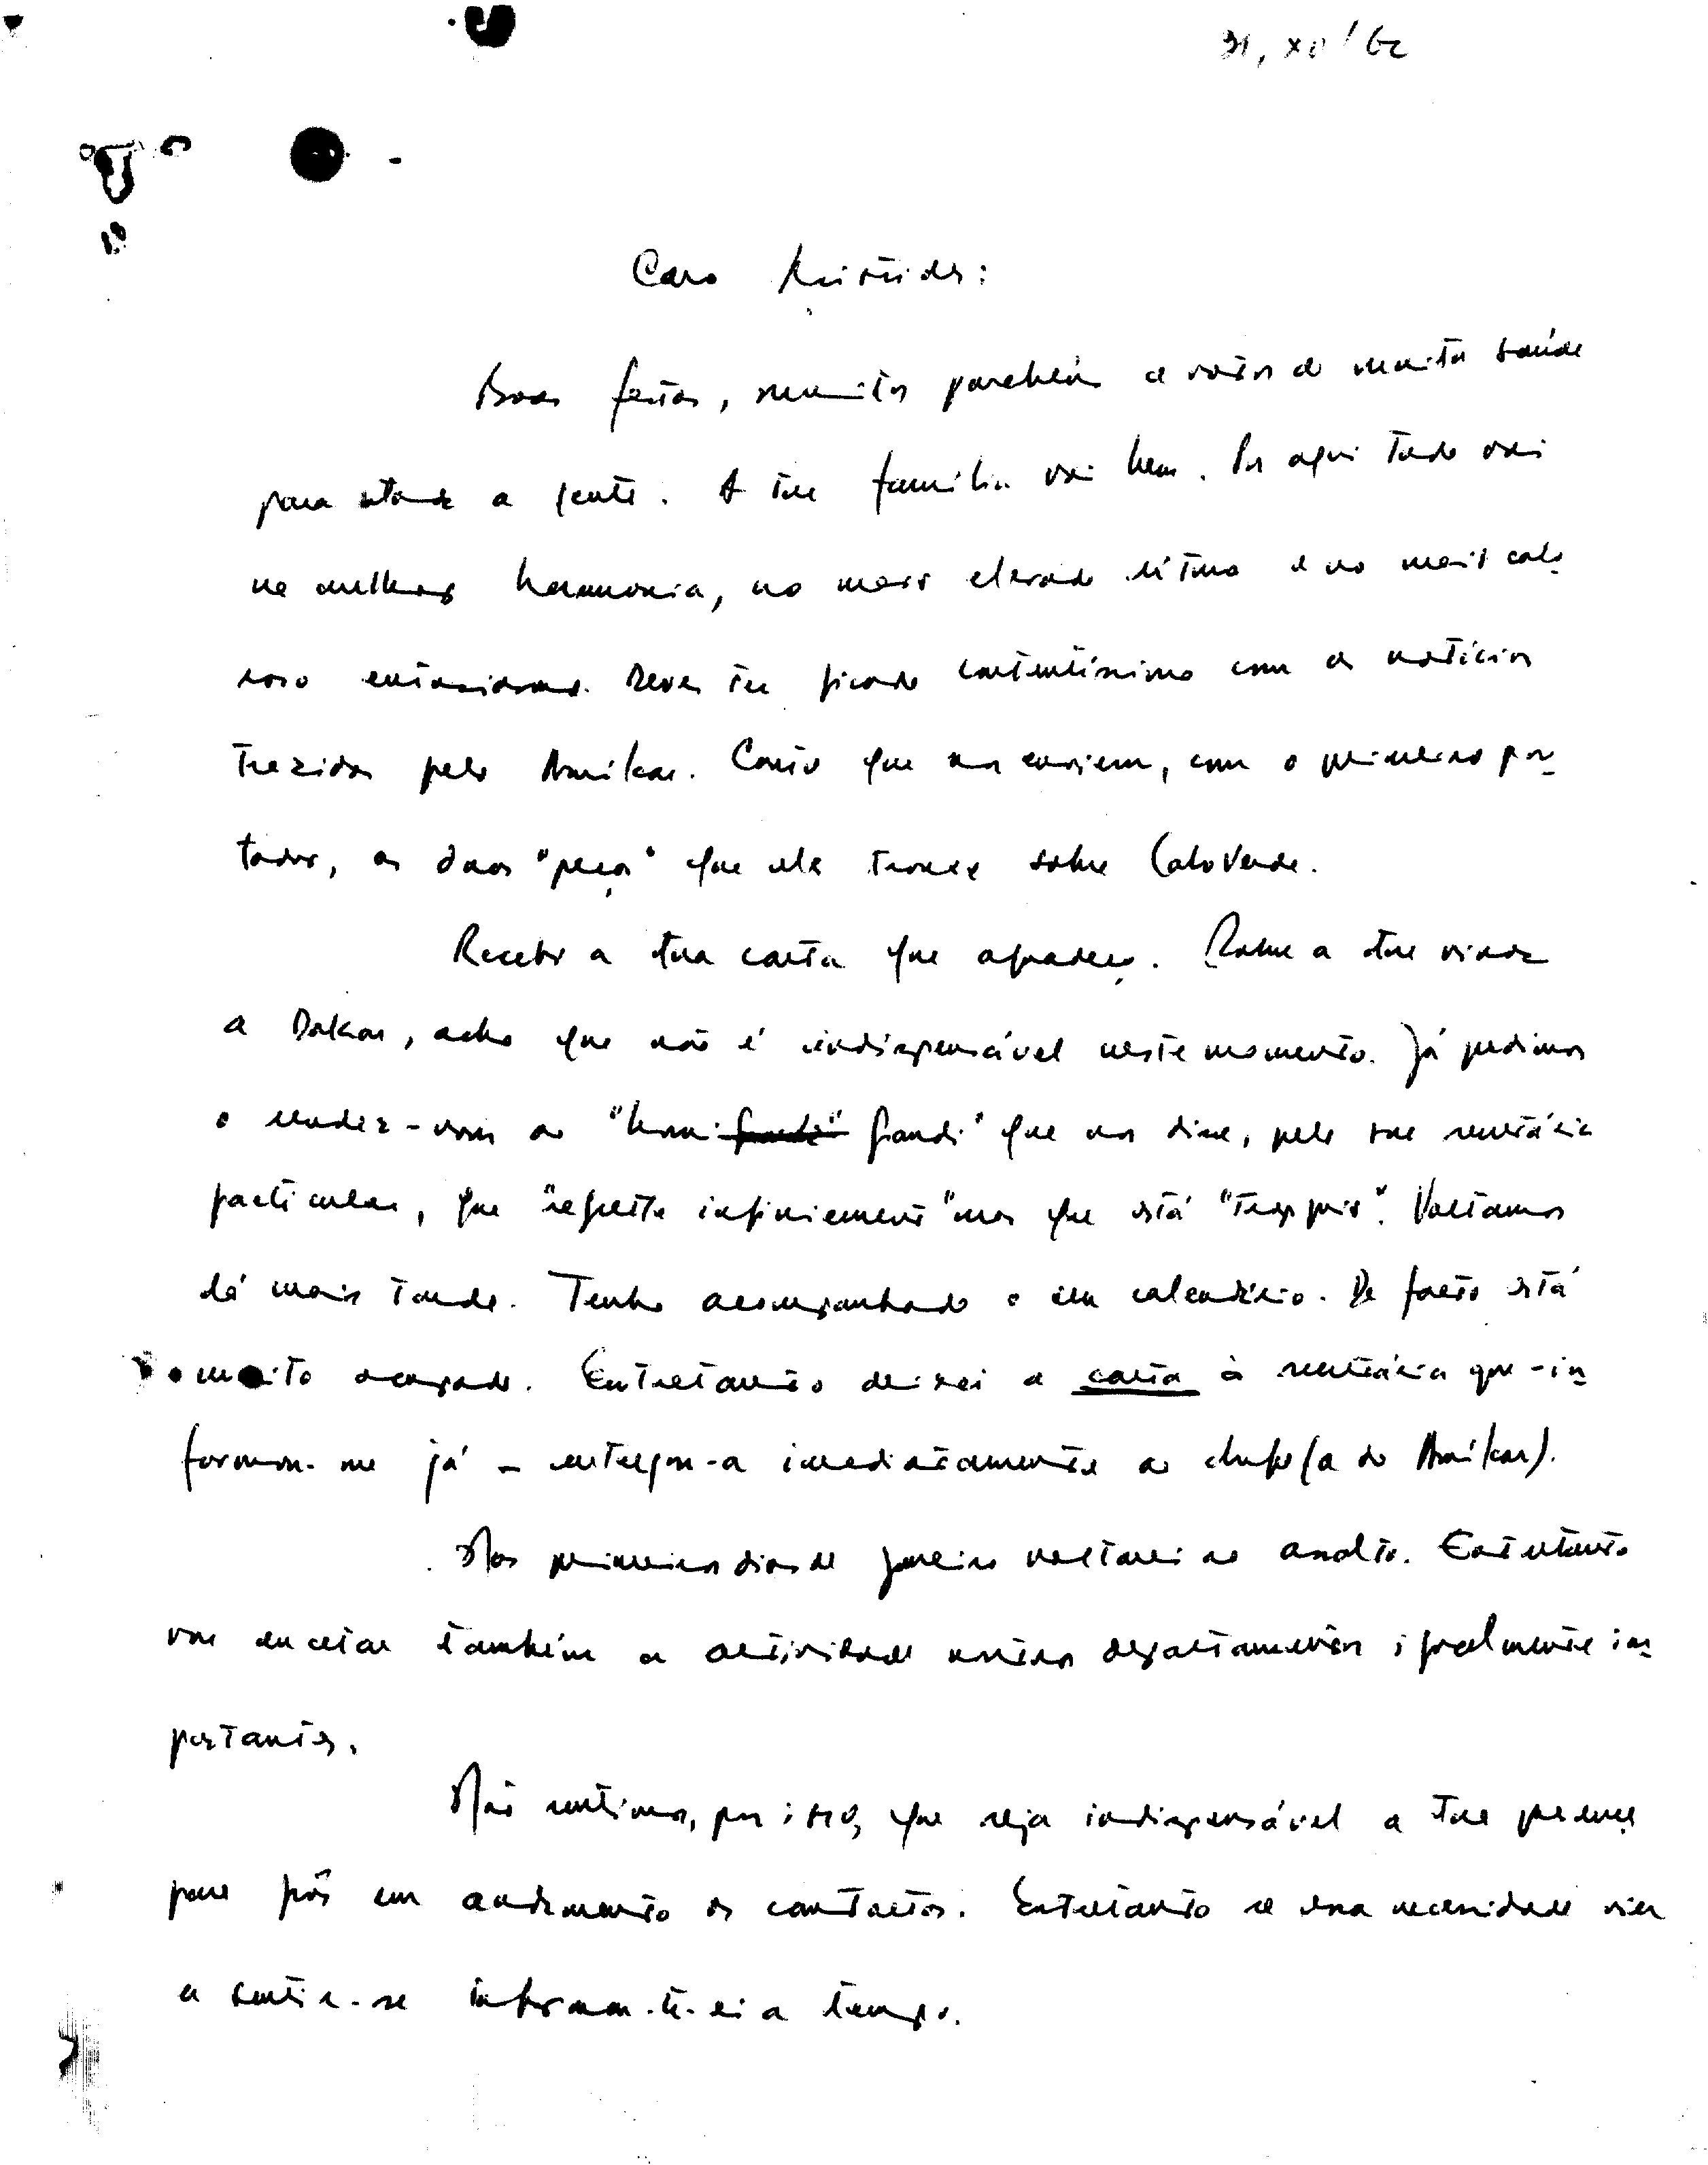 31, XII/62
Caro Aristides:
Boas festas, muitos parabéns e votos de muita saúde
para toda a gente. A tua família vai bem. Por aqui tudo vai
na melhor harmonia, no mais elevado ritmo e no mais calo
roso entusiasmo. Deves ter ficado contentíssimo com as notícias
trazidas pelo Amílcar. Conto que nos enviem, com o primeiro por
tador, as duas "peças" que ele trouxe sobre Cabo Verde.
Recebi a tua carta que agradeço. Sobre a tua vinda
a Dakar, acho que não é indispensável neste momento. Já pedimos
o rendez-vous ao "homi grandi" que nos disse, pela sua secretária
particular, que "regrette infiniement" mas que está "très pris". Voltamos
lá mais tarde. Tenho acompanhado o seu calendário. De facto está
muito ocupado. Entretanto deixei a carta à secretária que - in
formou-me já - entregou-a imediatamente ao chefe (a do Amílcar).
Nos primeiros dias de Janeiro voltarei ao assalto. Entretanto
vou encetar também a actividade noutros departamentos igualmente im
portantes.
Não sentimos, por isso, que seja indispensável a tua presença
para pôr em andamento os contactos. Entretanto se essa necessidade vier
a sentir-se informar-te-ei a tempo.